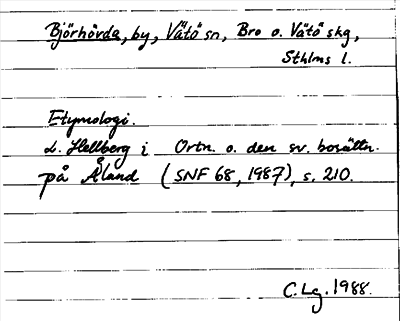 Björhövda, by, Vätö sn, Bro o. Vätö skg,
Sthlms l.
Etymologi.
L. Hellberg i Ortn. o. den sv. bosättn.
på Åland (SNF 68, 1987), s. 210.
C. Lg. 1988.